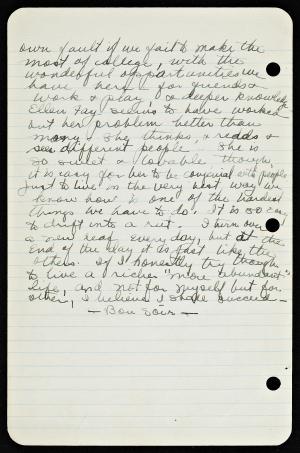 own fault if we fail to make the
most of college, with the
wonderful opportunities we
have here - for friends &
work & play, & deeper knowledge
Ellen Fay seems to have worked
out her problem better than
many - She thinks, & reads &
sees different people. She is
so sweet & lovable though,
it is easy for her to be congenial with people
Just to live in the very best way we
know how is one of the hardest
things we have to do. It is so easy
to drift into a rut. I turn over
a new leaf every day, but at the
end of the day it is just like the
others. If I honestly try though
to live a richer "more abundant"
life, and not for myself but for
others, I believe I shall succeed -
- Bon Soir -